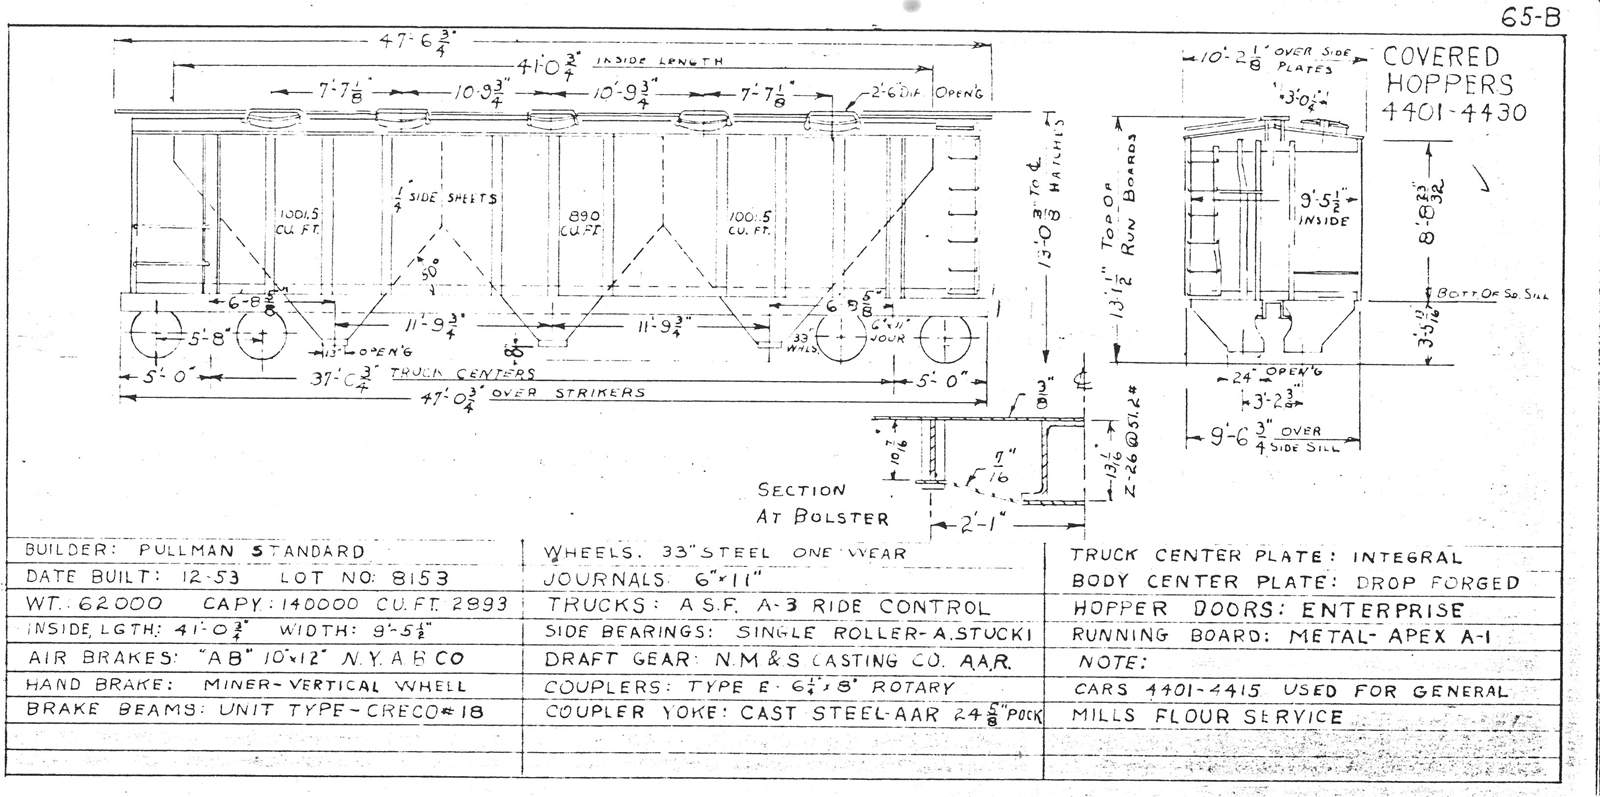 65-B
COVERED
HOPPERS
4401-4430
47'-6 3/4"
41'-0 3/4" INSIDE LENGTH
7'-7 1/8" 10'-9 3/4" 10'-9 3/4" 7'-7 1/8" 2'-6" DIA. OPEN'G
1/4" SIDE SHEETS
1001.5
CU. FT.
890
CU. FT.
1001.5
CU. FT.
50°
6'-8 5/8" 6'-8 5/8"
11'-9 3/4" 11'-9 3/4"
5'-8" 33"
WHLS. 6"x11"
JOUR
13" OPEN'G 8"
5'-0" 37'-0 3/4" TRUCK CENTERS 5'-0"
47'-0 3/4" OVER STRIKERS
13'-0 3/8" TO ℄
HATCHES
13'-1 1/2" TOP OF
RUN BOARDS
10'-2 1/8" OVER SIDE
PLATES
3'-0 1/4"
9'-5 1/2"
INSIDE
8'-8 23/32"
BOTT. OF SD. SILL
3'-5 13/16"
24" OPEN'G
3'-2 3/8"
9'-6 3/4" OVER
SIDE SILL
3/8"
℄
10 7/16"
7/16"
13 1/16"
Z-26@51.2#
2'-1"
SECTION
AT BOLSTER
BUILDER: PULLMAN STANDARD
DATE BUILT: 12-53 LOT NO: 8153
WT.: 62000 CAPY: 140000 CU. FT. 2893
INSIDE, LGTH: 41'-0 3/4" WIDTH: 9'-5 1/2"
AIR BRAKES: "AB" 10"x12" N.Y.A.B CO
HAND BRAKE: MINER-VERTICAL WHELL
BRAKE BEAMS: UNIT TYPE-CRECO#18
WHEELS. 33" STEEL ONE-WEAR
JOURNALS: 6"x11"
TRUCKS: A.S.F. A-3 RIDE CONTROL
SIDE BEARINGS: SINGLE ROLLER-A.STUCKI
DRAFT GEAR: N.M&S CASTING CO. A.A.R.
COUPLERS: TYPE E- 6 1/4"x8" ROTARY
COUPLER YOKE: CAST STEEL-AAR 24 5/8" POCK
TRUCK CENTER PLATE: INTEGRAL
BODY CENTER PLATE: DROP FORGED
HOPPER DOORS: ENTERPRISE
RUNNING BOARD: METAL-APEX A-1
NOTE:
CARS 4401-4415 USED FOR GENERAL
MILLS FLOUR SERVICE